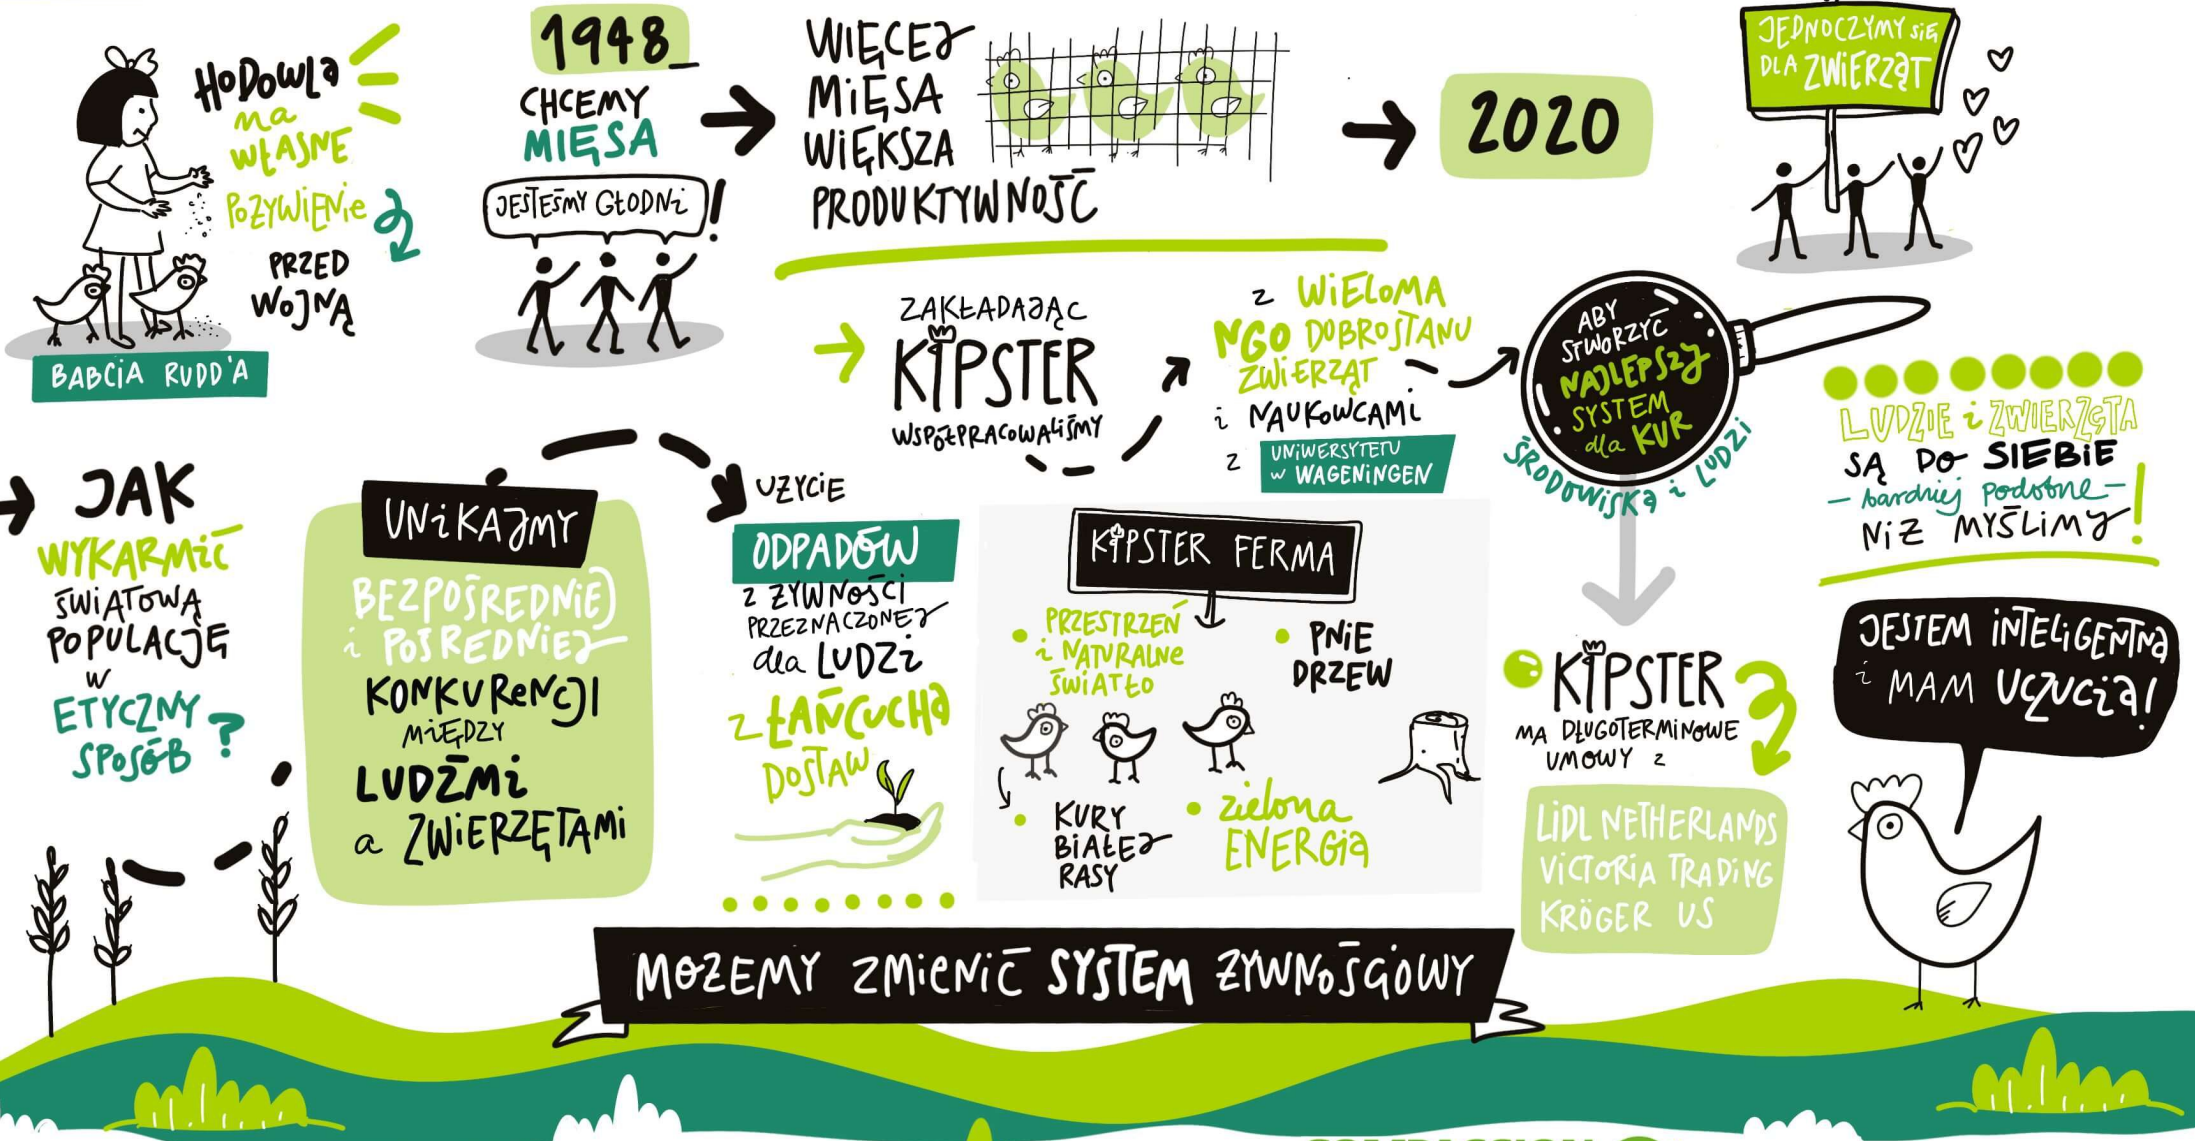 HODOWLA
na
WŁASNE
POŻYWIENIE
PRZED
WOJNĄ
BABCIA RUDD'A
1948
CHCEMY
MIĘSA
JESTEŚMY GŁODNI!
WIĘCEJ
MIĘSA
WIĘKSZA
PRODUKTYWNOŚĆ
2020
JEDNOCZYMY SIĘ
DLA ZWIERZĄT
ZAKŁADAJĄC
KIPSTER
WSPÓŁPRACOWALIŚMY
Z WIELOMA
NGO DOBROSTANU
ZWIERZĄT
i NAUKOWCAMI
Z UNIWERSYTETU
w WAGENINGEN
ABY
STWORZYĆ
NAJLEPSZY
SYSTEM
dla KUR
ŚRODOWISKA i LUDZI
LUDZIE i ZWIERZĘTA
SĄ DO SIEBIE
- bardziej podobne -
NIŻ MYŚLIMY!
JAK
WYKARMIĆ
ŚWIATOWĄ
POPULACJĘ
W
ETYCZNY
SPOSÓB?
UNIKAJMY
BEZPOŚREDNIEJ
i POŚREDNIEJ
KONKURENCJI
MIĘDZY
LUDŹMI
a ZWIERZĘTAMI
UŻYCIE
ODPADÓW
Z ŻYWNOŚCI
PRZEZNACZONEJ
dla LUDZI
Z ŁAŃCUCHA
DOSTAW
KIPSTER FERMA
PRZESTRZEŃ
i NATURALNE
ŚWIATŁO
PNIE
DRZEW
KURY
BIAŁEJ
RASY
zielona
ENERGIA
KIPSTER
MA DŁUGOTERMINOWE
UMOWY Z
LIDL NETHERLANDS
VICTORIA TRADING
KRÖGER US
JESTEM INTELIGENTNA
i MAM UCZUCIA!
MOŻEMY ZMIENIĆ SYSTEM ŻYWNOŚCIOWY